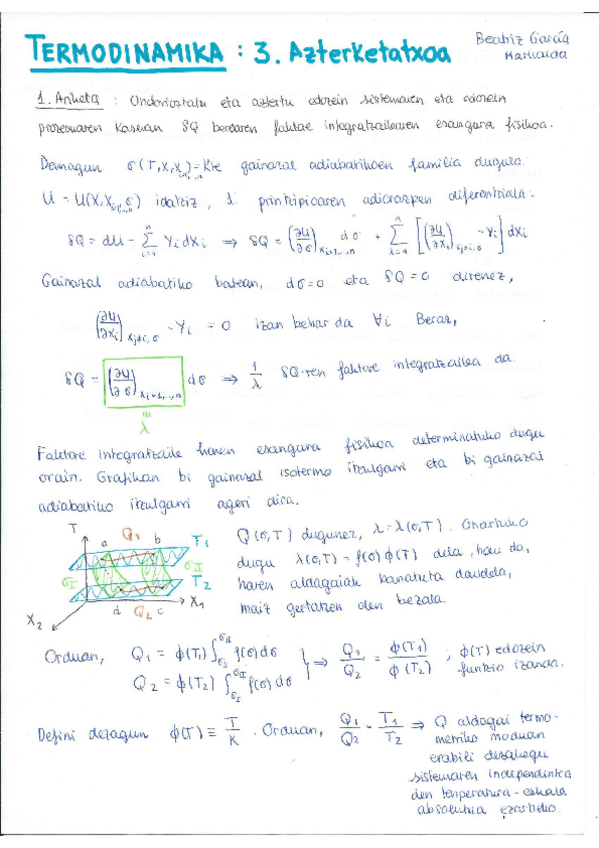 TERMODINAMIKA : 3. Azterketatxoa
Beatriz García
1. Ariketa : Ondorioztatu eta aztertu edozein sistemaren eta edozein
prozesuaren kasuan δQ beroaren faktore integratzailearen esangura fisikoa.
Demagun σ(T, X, X_{i=1,...,n}) = Kte gainazal adiabatikoen familia dugula.
U = U(X, X_{i=1,...,n}, σ) idatziz, 1. printzipioaren adierazpen diferentziala:
δQ = dU - \sum_{i=1}^{n} Y_i dX_i ⇒ δQ = (∂U/∂σ)_{X_{i=1,...,n}} dσ + \sum_{i=1}^{n} [(∂U/∂X_i)_{X_{j≠i}, σ} - Y_i] dX_i
Gainazal adiabatiko batean, dσ=0 eta δQ=0 direnez,
(∂U/∂X_i)_{X_{j≠i}, σ} - Y_i = 0 izan behar da ∀i. Beraz,
δQ = (∂U/∂σ)_{X_{i=1,...,n}} dσ ⇒ 1/λ δQ-ren faktore integratzailea da.
≡ λ
Faktore integratzaile honen esangura fisikoa determinatuko dugu
orain. Grafikan bi gainazal isotermo itzulgarri eta bi gainazal
adiabatiko itzulgarri ageri dira.
T Q1 a b T1
σI σII T2
X2 d Q2 c X1
Q(σ,T) dugunez, λ = λ(σ,T). Onartuko
dugu λ(σ,T) = f(σ) ϕ(T) dela, hau da,
haren aldagaiak banatuta daudela,
maiz gertatzen den bezala.
Orduan, Q1 = ϕ(T1) ∫_{σI}^{σII} f(σ) dσ
Q2 = ϕ(T2) ∫_{σI}^{σII} f(σ) dσ
} ⇒ Q1/Q2 = ϕ(T1)/ϕ(T2) ; ϕ(T) edozein
funtzio izanda.
Defini dezagun ϕ(T) ≡ T/K. Orduan, Q1/Q2 = T1/T2 ⇒ Q aldagai termo-
metriko moduan
erabili dezakegu
sistemaren independentea
den tenperatura-eskala
absolutua ezartzeko.